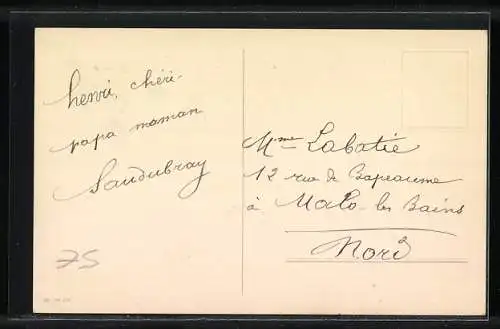 henri, chéri-
papa maman
Saudubray
75
Mme Labatie
12 rue de Bapeaume
à Malo-les Bains
Nord